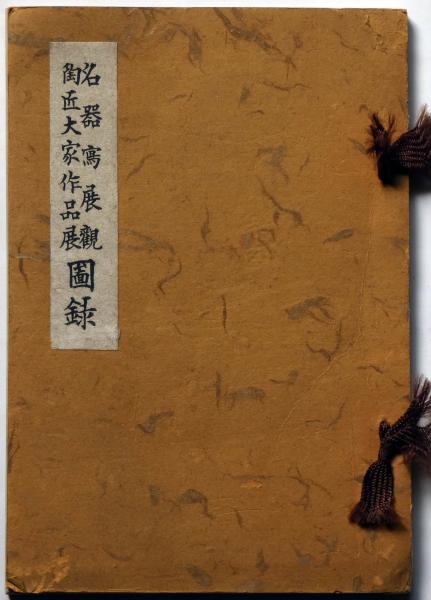 名器寫展觀
陶匠大家作品展
圖錄